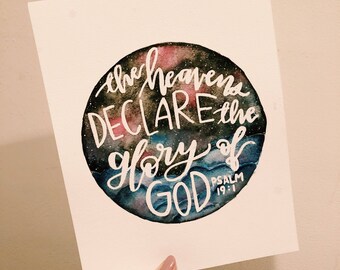 the heavens
DECLARE the
glory of
GOD PSALM
19:1